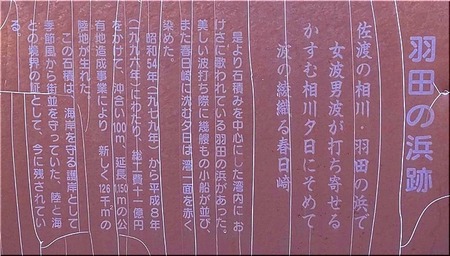 羽田の浜跡
佐渡の相川・羽田の浜で
女波男波が打ち寄せる
かすむ相川夕日にそめて
波の綾織る春日崎
是より石積みを中心にした湾内に お
けさに歌われている羽田の浜があった。
美しい波打ち際に幾艘もの小船が並び、
また春日崎に沈む夕日は 湾一面を赤く
染めた。
昭和54年(一九七九年)から平成8年
(一九九六年)にわたり、総工費十一億円
をかけて、沖合い100m、延長1,150mの公
有地造成事業により 新しく126千㎡の
陸地が生れた。
この石積は、海岸を守る護岸として
季節風から街並を守っていた、陸と海
との境界の証として、今に残されてい
る。